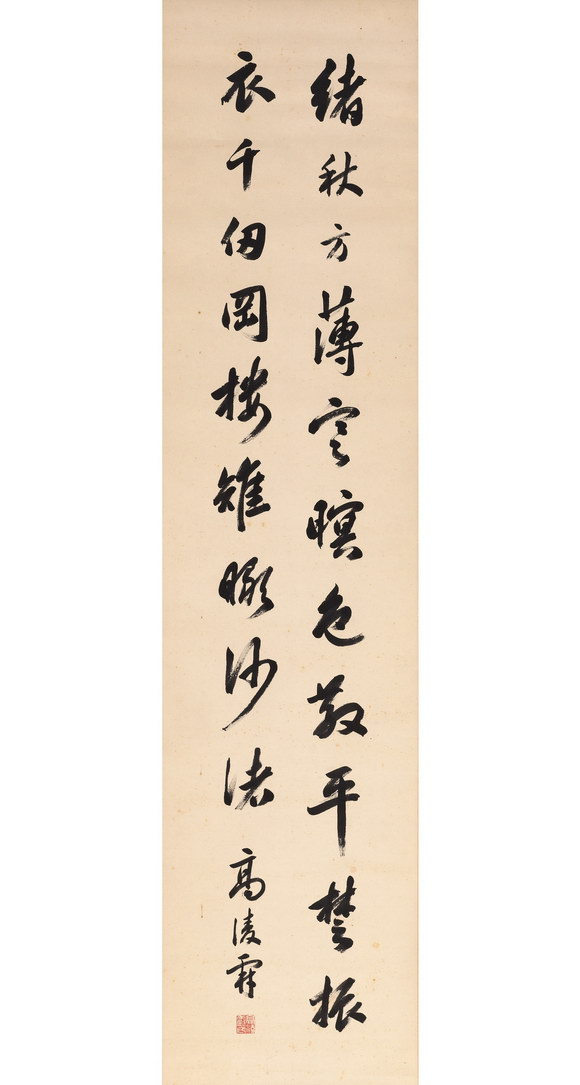 緒秋方薄寒暝色散平楚振
衣千仞岡樓雉瞰沙渚
高淩霨